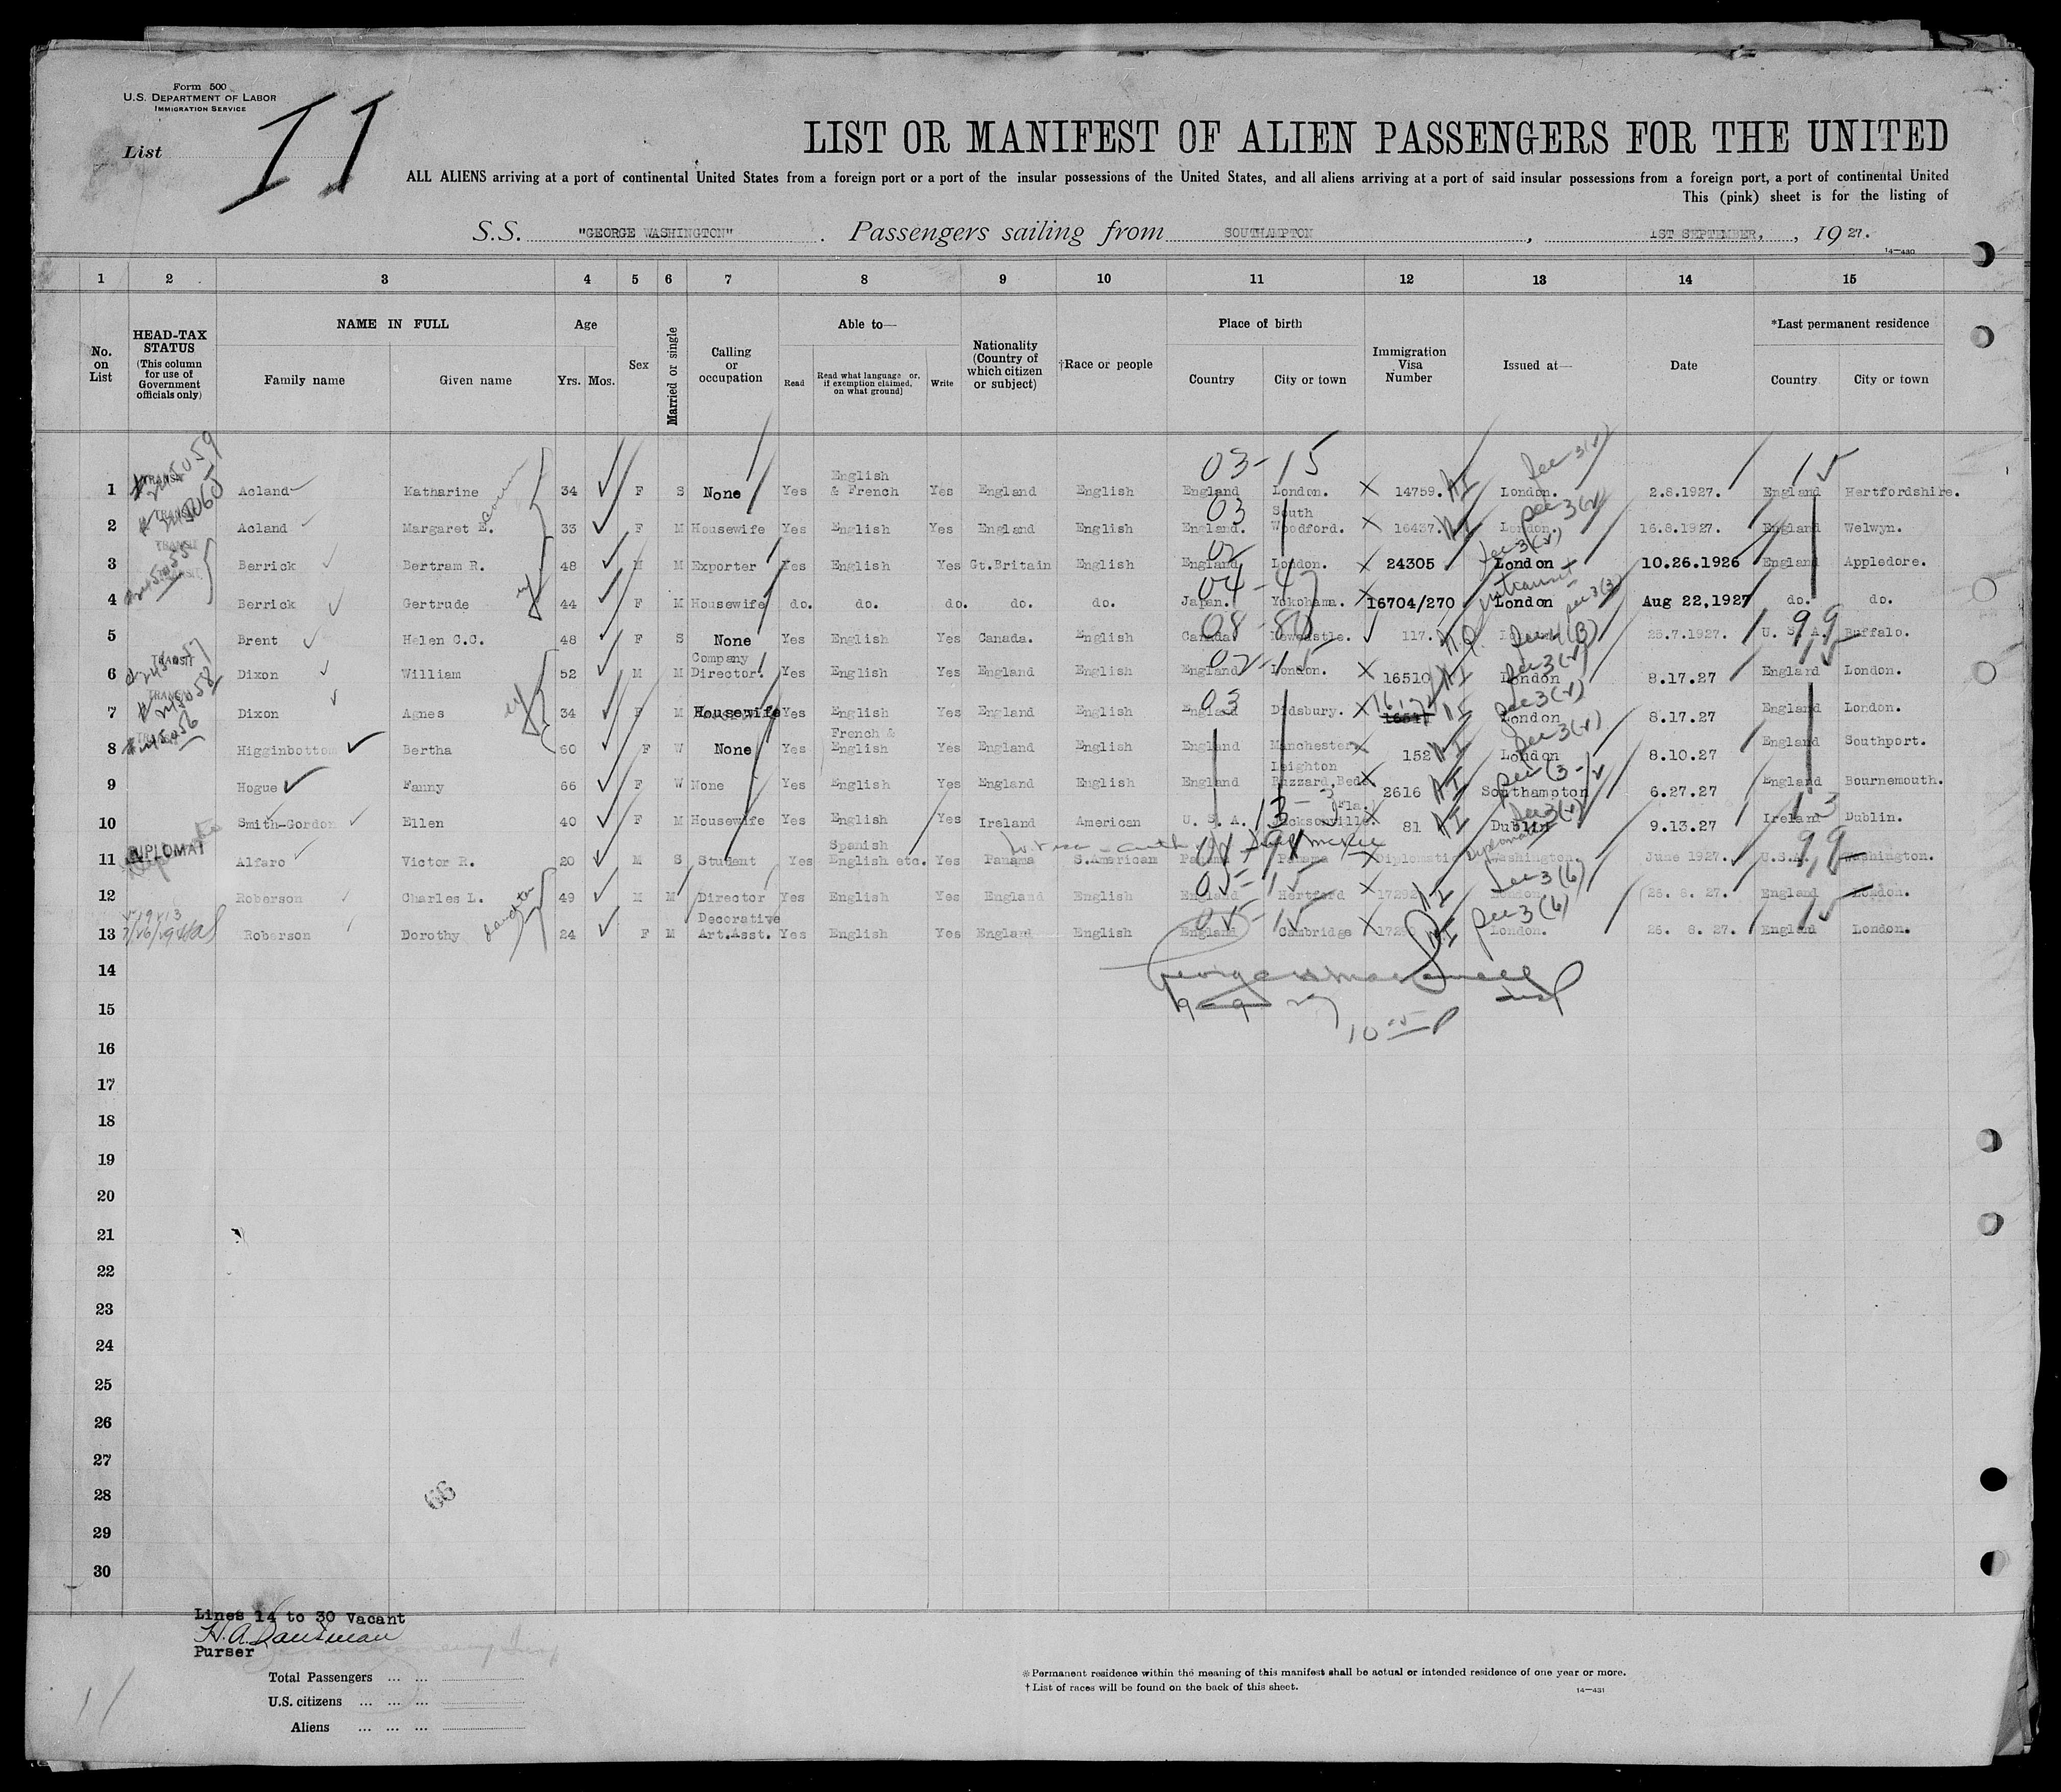 Form 500
U.S. DEPARTMENT OF LABOR
IMMIGRATION SERVICE
List 11
LIST OR MANIFEST OF ALIEN PASSENGERS FOR THE UNITED
ALL ALIENS arriving at a port of continental United States from a foreign port or a port of the insular possessions of the United States, and all aliens arriving at a port of said insular possessions from a foreign port, a port of continental United
This (pink) sheet is for the listing of
S.S. "GEORGE WASHINGTON" . Passengers sailing from SOUTHAMPTON , 1ST SEPTEMBER, , 19 27.
14—430
1 2 3 4 5 6 7 8 9 10 11 12 13 14 15
No. on List
HEAD-TAX STATUS (This column for use of Government officials only)
NAME IN FULL
Family name Given name
Age
Yrs. Mos.
Sex
Married or single
Calling or occupation
Able to—
Read Read what language or, if exemption claimed, on what ground] Write
Nationality (Country of which citizen or subject)
†Race or people
Place of birth
Country City or town
Immigration Visa Number
Issued at—
Date
*Last permanent residence
Country City or town
03-15
1 TRANSIT Acland Katharine 34 F S None Yes English & French Yes England English England London. 14759. London. 2.8.1927. England Hertfordshire.
2 TRANSIT Acland Margaret E. 33 F M Housewife Yes English Yes England English England. South Woodford. 16437. London. 16.8.1927. England Welwyn.
3 TRANSIT Berrick Bertram R. 48 M M Exporter Yes English Yes Gt.Britain English England London. 24305 London 10.26.1926 England Appledore.
4 Berrick Gertrude 44 F M Housewife do. do. do. do. do. Japan. Yokohama. 16704/270 London Aug 22,1927 do. do.
5 Brent Helen C.C. 48 F S None Yes English Yes Canada. English Canada. Newcastle. 117. 25.7.1927. U. S. A. Buffalo.
6 TRANSIT Dixon William 52 M M Company Director. Yes English Yes England English England London. 16510 London 8.17.27 England London.
7 TRANSIT Dixon Agnes 34 F M Housewife Yes English Yes England English England Didsbury. London 8.17.27 England London.
8 Higginbottom Bertha 60 F W None Yes French & English Yes England English England Manchester 152 London 8.10.27 England Southport.
9 Hogue Fanny 66 F W None Yes English Yes England English England Leighton Buzzard,Beds 2616 Southampton 6.27.27 England Bournemouth.
10 Smith-Gordon Ellen 40 F M Housewife Yes English Yes Ireland American U. S. A. Jacksonville. Fla. 81 Dublin 9.13.27 Ireland Dublin.
11 DIPLOMAT Alfaro Victor R. 20 M S Student Yes Spanish English etc. Yes Panama S.American Panama Panama Diplomatic Washington. June 1927. U.S.A. Washington.
12 Roberson Charles L. 49 M M Director Yes English Yes England English England Hertford London. 25. 8. 27. England London.
13 Roberson Dorothy daughter 24 F M Decorative Art.Asst. Yes English Yes England English England Cambridge London. 25. 8. 27. England London.
14
15
16
17
18
19
20
21
22
23
24
25
26
27
28
29
30
66
Lines 14 to 30 Vacant
Purser
Total Passengers ... ...
U.S. citizens ... ... ...
Aliens ... ... ...
11
* Permanent residence within the meaning of this manifest shall be actual or intended residence of one year or more.
† List of races will be found on the back of this sheet.
14—431